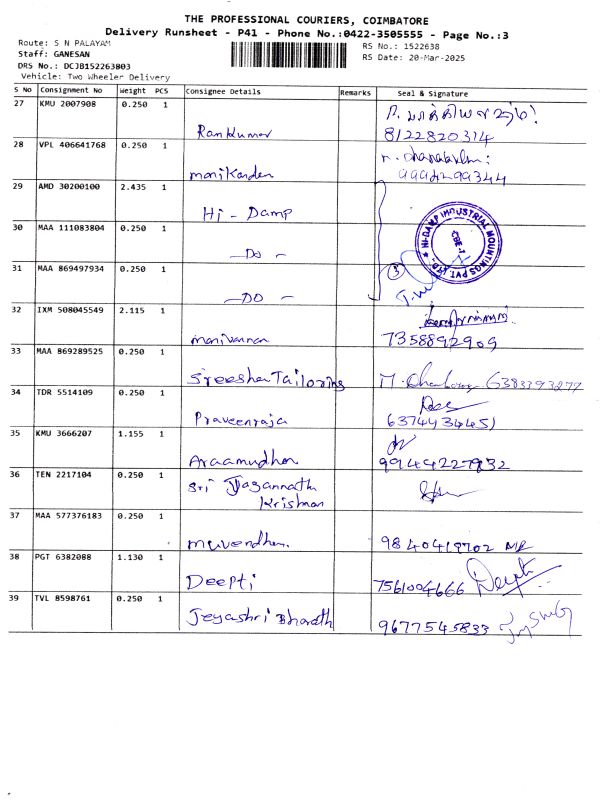 THE PROFESSIONAL COURIERS, COIMBATORE
Delivery Runsheet - P41 - Phone No.:0422-3505555 - Page No.:3
Route: S N PALAYAM
RS No.: 1522638
Staff: GANESAN
RS Date: 20-Mar-2025
DRS No.: DCJB152263803
Vehicle: Two Wheeler Delivery
S No Consignment No Weight PCS Consignee Details Remarks Seal & Signature
27 KMU 2007908 0.250 1
Ramkumar 8122820314
28 VPL 406641768 0.250 1
manikanden 9994299344
29 AMD 30200100 2.435 1
Hi - Damp
HI-DAMP INDUSTRIAL MOUNTINGS PVT. LTD. ★ CBE-1
30 MAA 111083804 0.250 1
— Do —
31 MAA 869497934 0.250 1
— DO —
3
32 IXM 508045549 2.115 1
manivannan 7358892909
33 MAA 869289525 0.250 1
Sreesha Tailoring 6383393277
34 TDR 5514109 0.250 1
Praveenraja 6374434451
35 KMU 3666207 1.155 1
Araamudhan 9944227932
36 TEN 2217104 0.250 1
Sri Jagannath
Krishnan
37 MAA 577376183 0.250 1
muvendhan. 9840419702
38 PGT 6382088 1.130 1
Deepti 7561004666 Deepti
39 TVL 8598761 0.250 1
Jeyashri Bharath 9677545833